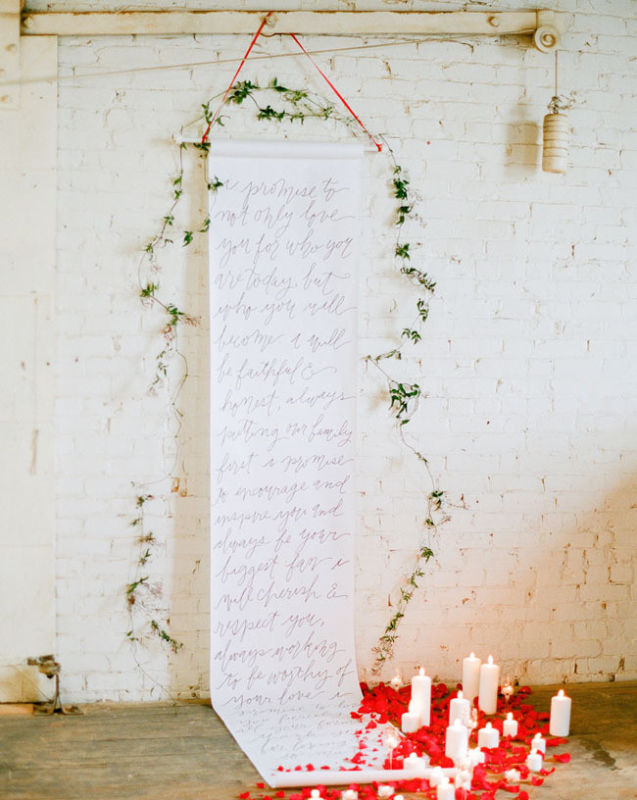 i promise to
not only love
you for who you
are today, but
who you will
become. i will
be faithful &
honest, always
putting our family
first. i promise
to encourage and
inspire you and
always be your
biggest fan. i
will cherish &
respect you,
always working
to be worthy of
your love. i